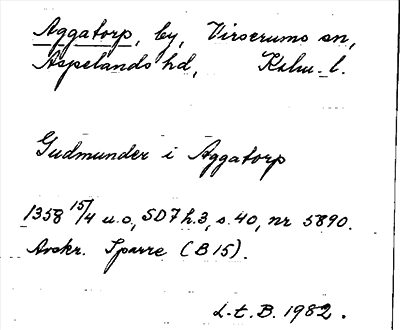 Aggatorp, by, Virserums sn,
Aspelands hd, Kslm. l.
Gudmunder i Aggatorp
1358 15/4 u.o, SD7 h.3, s.40, nr 5890.
Avskr. Sparre (B15).
L.t.B. 1982.